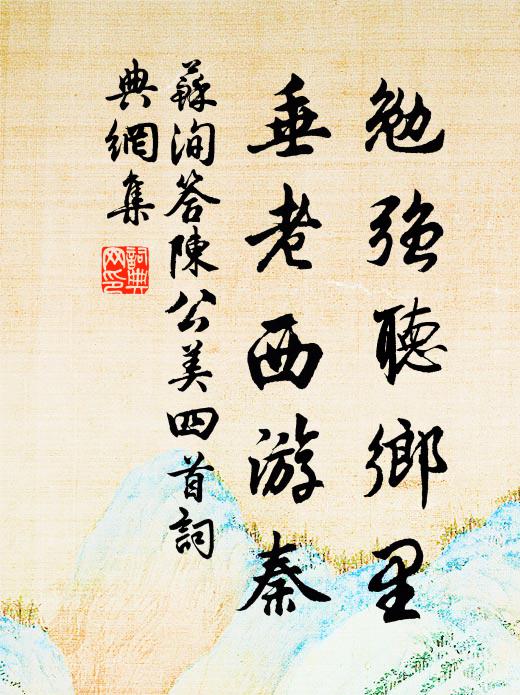 勉强聽鄉里
垂老西游秦
蘇洵答陳公美四首詞
典網集
詞典
网印